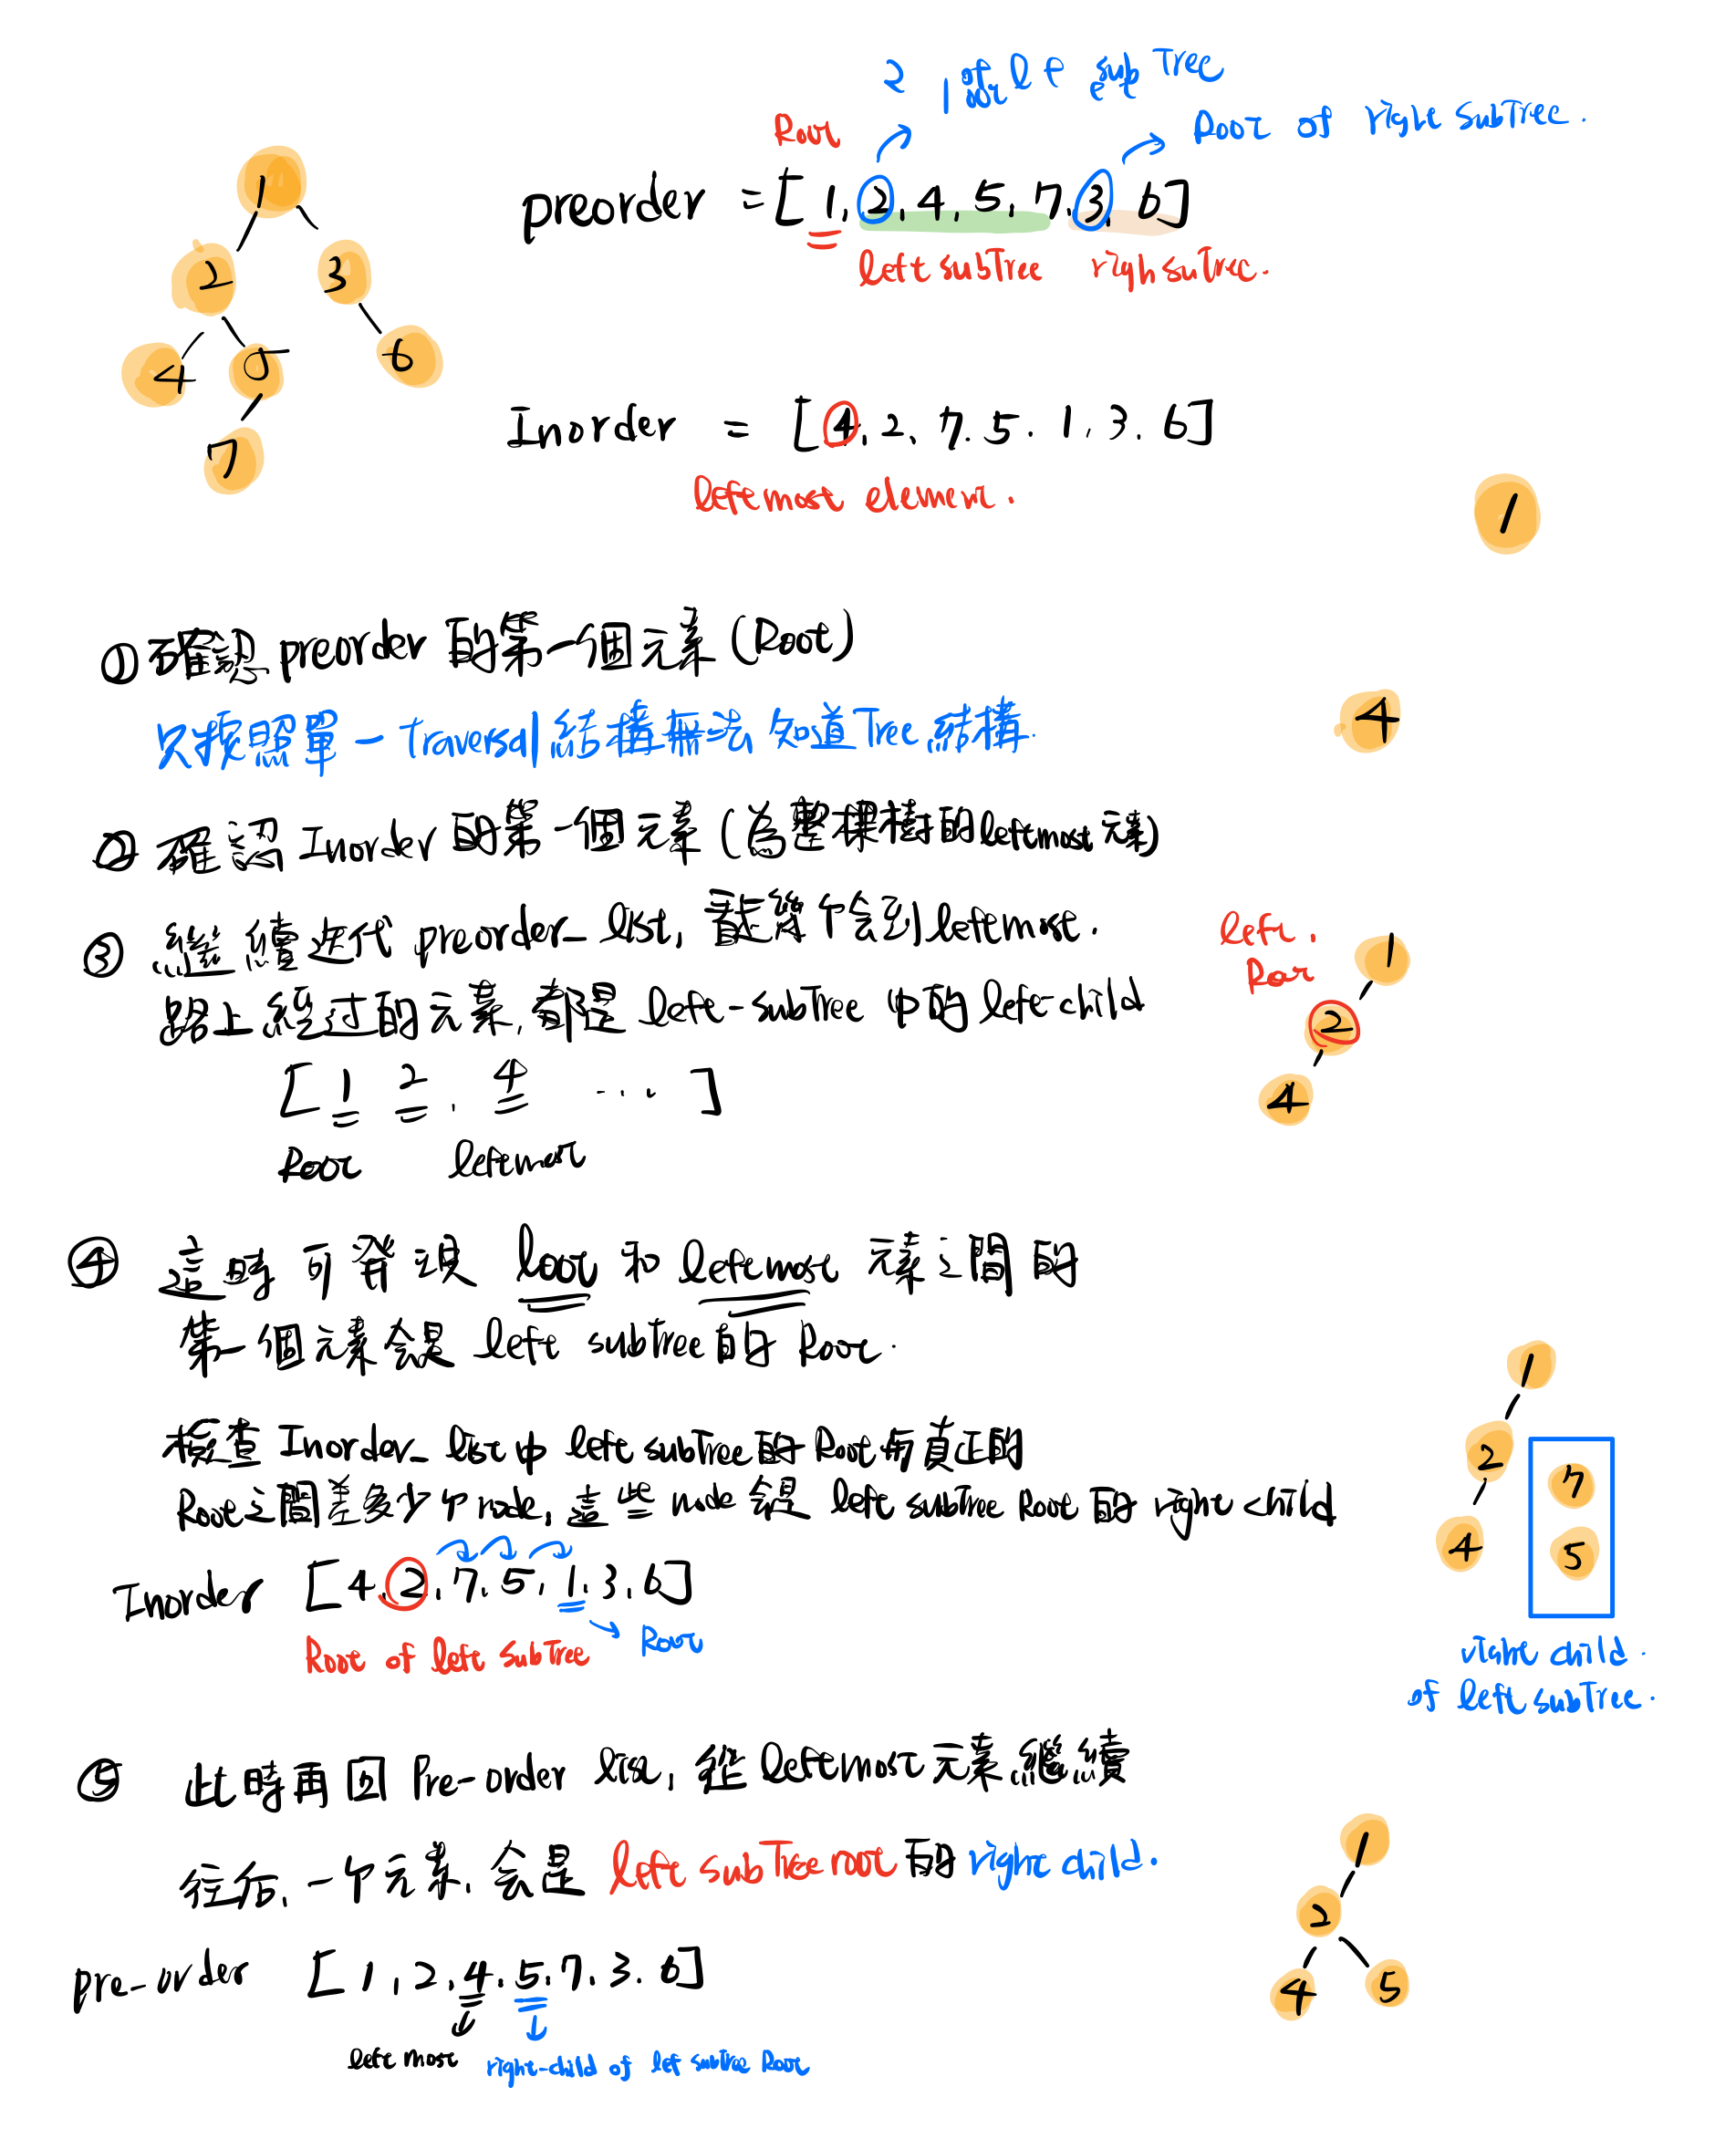 2
sub Tree
Root
Root of right SubTree.
1
preorder = [1, 2, 4, 5, 7, 3, 6]
2 3
left subTree righ suTree.
4 5 6
7
Inorder = [4, 2, 7. 5. 1, 3. 6]
leftmost element.
1
① 確認 preorder 的第一個元素 (Root)
只按照單一 traversal 結構無法知道 Tree 結構.
4
② 確認 Inorder 的第一個元素 (為整棵樹的 leftmost 元素)
③ 繼續迭代 preorder_list, 看幾个會到 leftmost.
路上經过的元素, 都是 left-subTree 中的 left-child
left.
Root
1
2
4
[ 1 2 . 4 ... ]
Root leftmost
④ 這時可發現 root 和 leftmost 元素之間的
第一個元素会是 left subTree 的 Root.
檢查 Inorder_list 中 left subTree 的 Root 與真正的
Root 之間差多少个 node, 這些 node 會是 left subTree Root 的 right child
1
2
4
7
5
Inorder [4, 2, 7. 5, 1. 3. 6]
Root of left SubTree
Root
right child.
of left subTree.
⑤ 此時再回 Pre-order list, 從 leftmost 元素繼續
往后, 一个元素, 会是 left subTree root 的 right child.
1
2
4 5
pre-order [1, 2, 4. 5. 7. 3. 6]
left most right-child of lef subTree Root